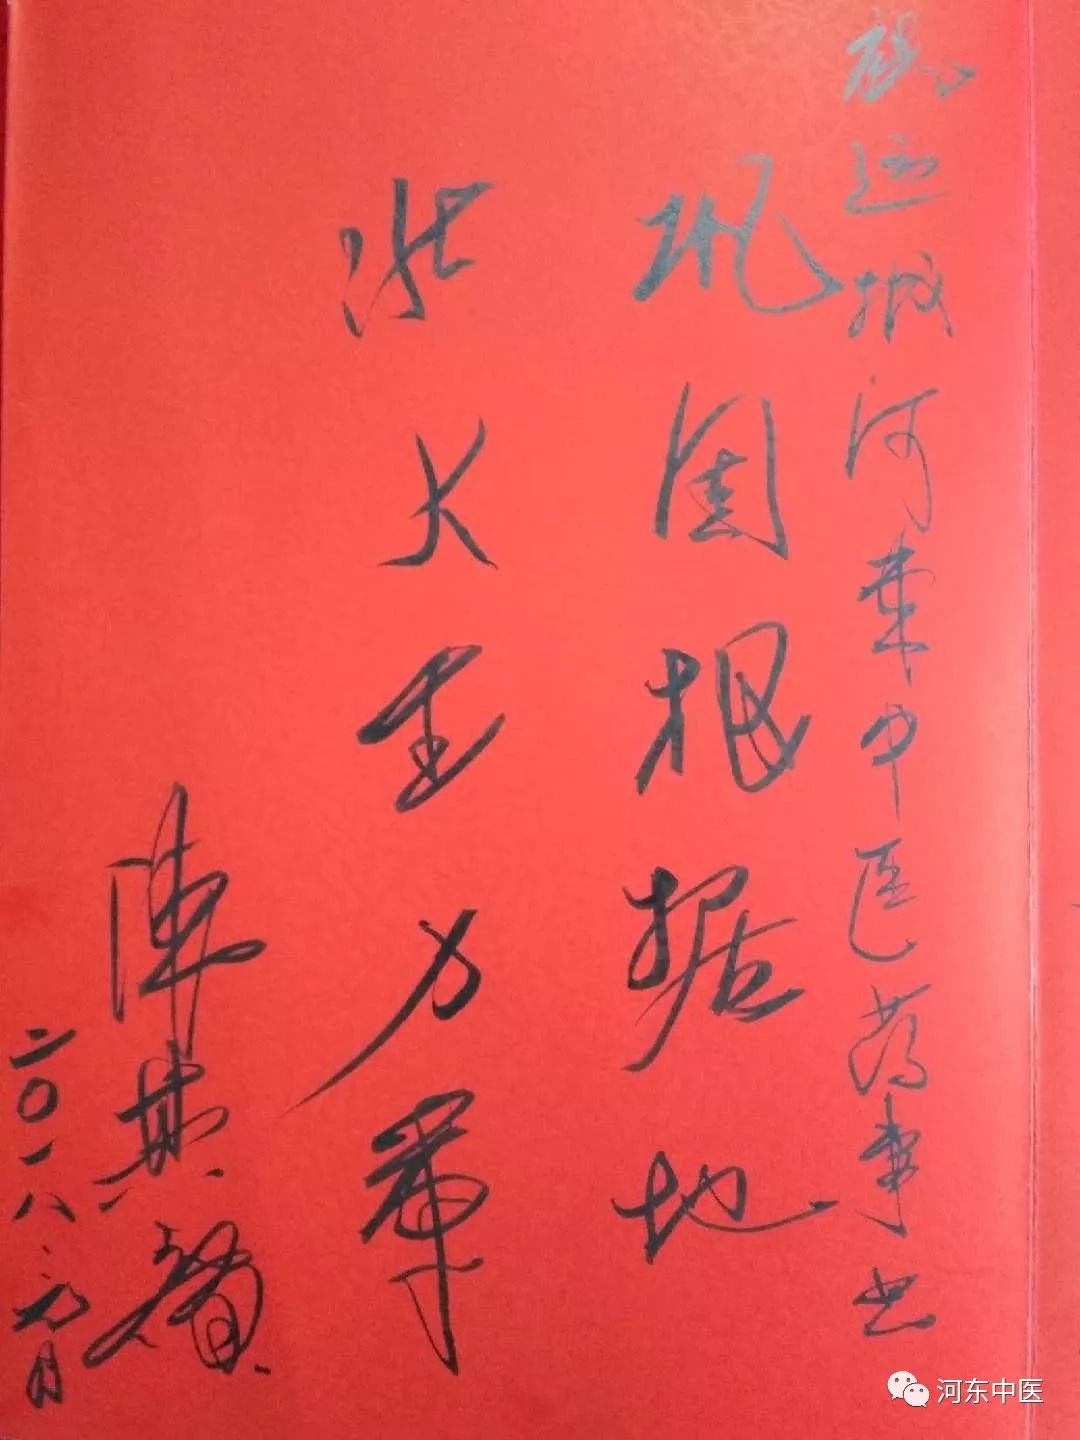 运城河东中医药事业
巩固根据地
壮大生力军
陈其
二〇一八、元月
河东中医